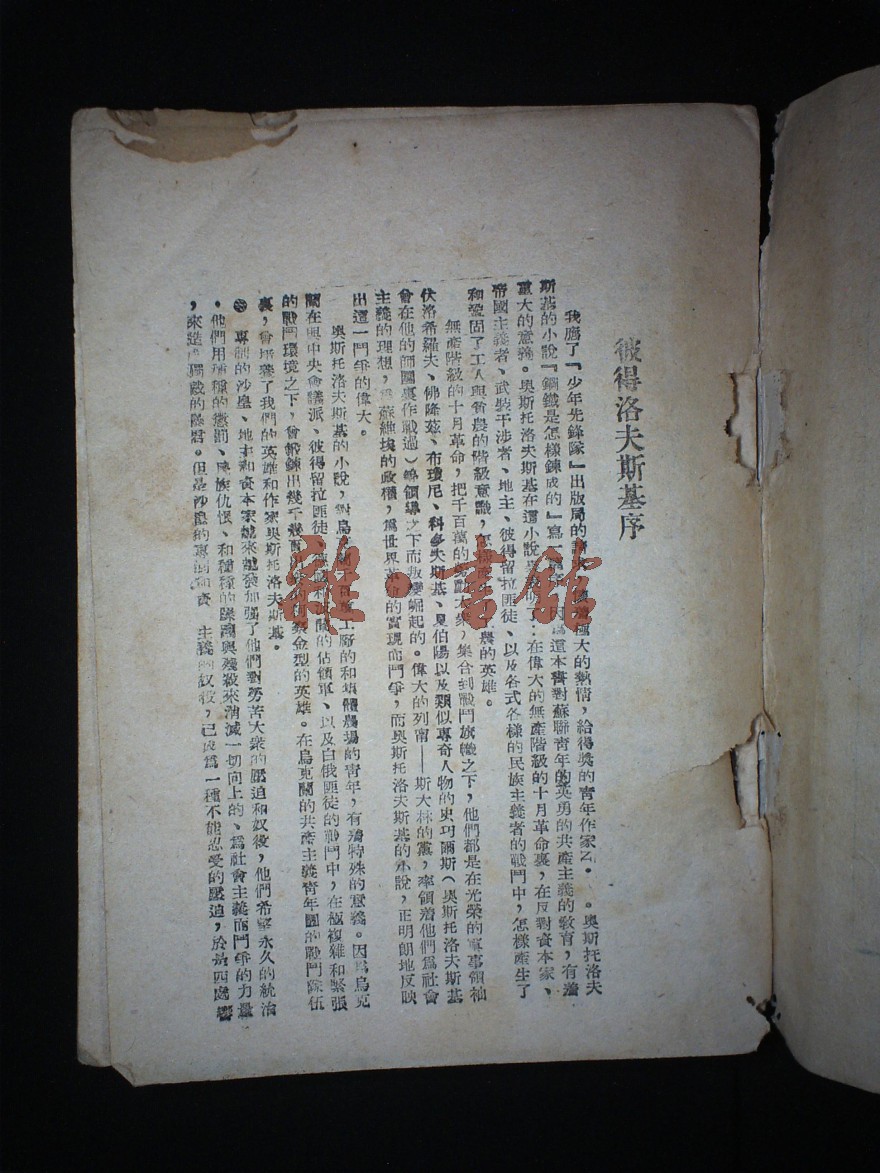 彼得洛夫斯基序
我應了「少年先鋒隊」出版局的請求,懷着極大的熱情,給得獎的青年作家 奧斯托洛夫
斯基的小說『鋼鐵是怎樣鍊成的』寫 因爲這本書對蘇聯青年的英勇的共產主義的敎育,有着
重大的意義。奧斯托洛夫斯基在這小說裏 明了:在偉大的無產階級的十月革命裏,在反對資本家、
帝國主義者、武裝干涉者、地主、彼得留拉匪徒、以及各式各樣的民族主義者的戰鬥中,怎樣產生了
和鞏固了工人與貧農的階級意識,怎樣產生 農的英雄。
無產階級的十月革命,把千百萬的 大衆,集合到戰鬥旗幟之下,他們都是在光榮的軍事領袖
伏洛希羅夫、佛隆茲、布瓊尼、科多夫斯基、夏伯陽以及類似專奇人物的史丏爾斯(奧斯托洛夫斯基
曾在他的師團裏作戰過)等領導之下而叛變崛起的。偉大的列甯——斯大林的黨,率領着他們爲社會
主義的理想,爲蘇維埃的政權,爲世界革命的實現而鬥爭,而奧斯托洛夫斯基的小說,正明朗地反映
出這一鬥爭的偉大。
奧斯托洛夫斯基的小說,對烏克蘭 工廠的和集體農場的青年,有着特殊的意義。因爲烏克
蘭在與中央會議派、彼得留拉匪徒、 的佔領軍、以及白俄匪徒的戰鬥中,在極複雜和緊張
的戰鬥環境之下,曾鍛鍊出幾千幾百 金型的英雄。在烏克蘭的共產主義青年團的戰鬥隊伍
裏,曾培養了我們的英雄和作家奧斯托洛夫斯基。
專制的沙皇、地主和資本家越來越發加强了他們對勞苦大衆的壓迫和奴役,他們希望永久的統治
。他們用種種的懲罰、民族仇恨、和種種的 與殘殺來消滅一切向上的、爲社會主義而鬥爭的力量
,來造成獨裁的暴君。但是沙皇的專制和資 主義的奴役,已成爲一種不能忍受的壓迫,於是四處響